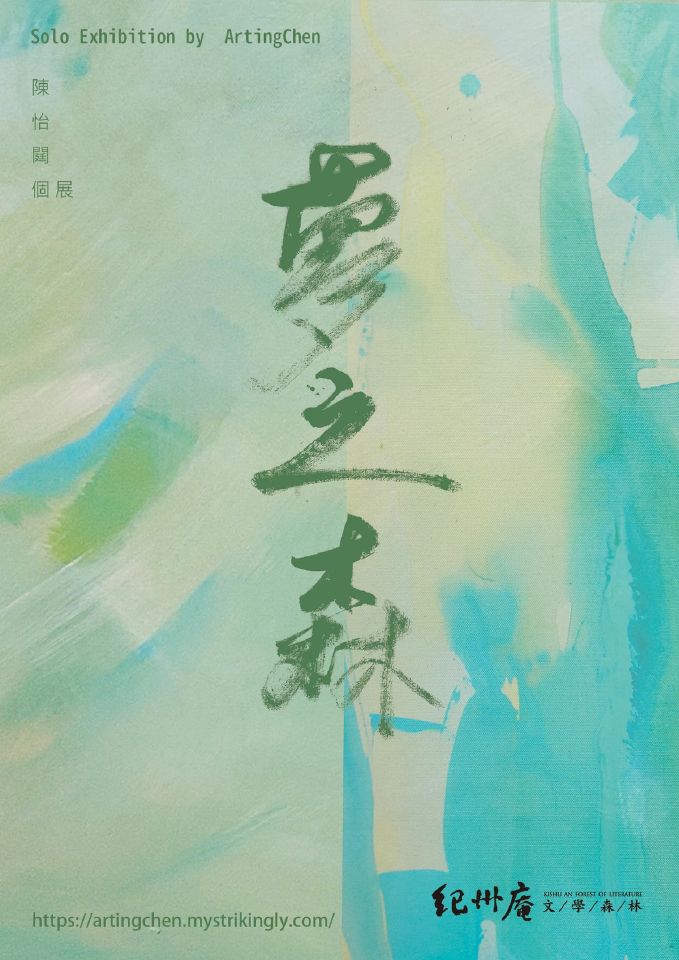 Solo Exhibition by ArtingChen
陳
怡
個展
夢之森
https://artingchen.mystrikingly.com/
紀州庵
KISHU AN FOREST OF LITERATURE
文/學/森/林